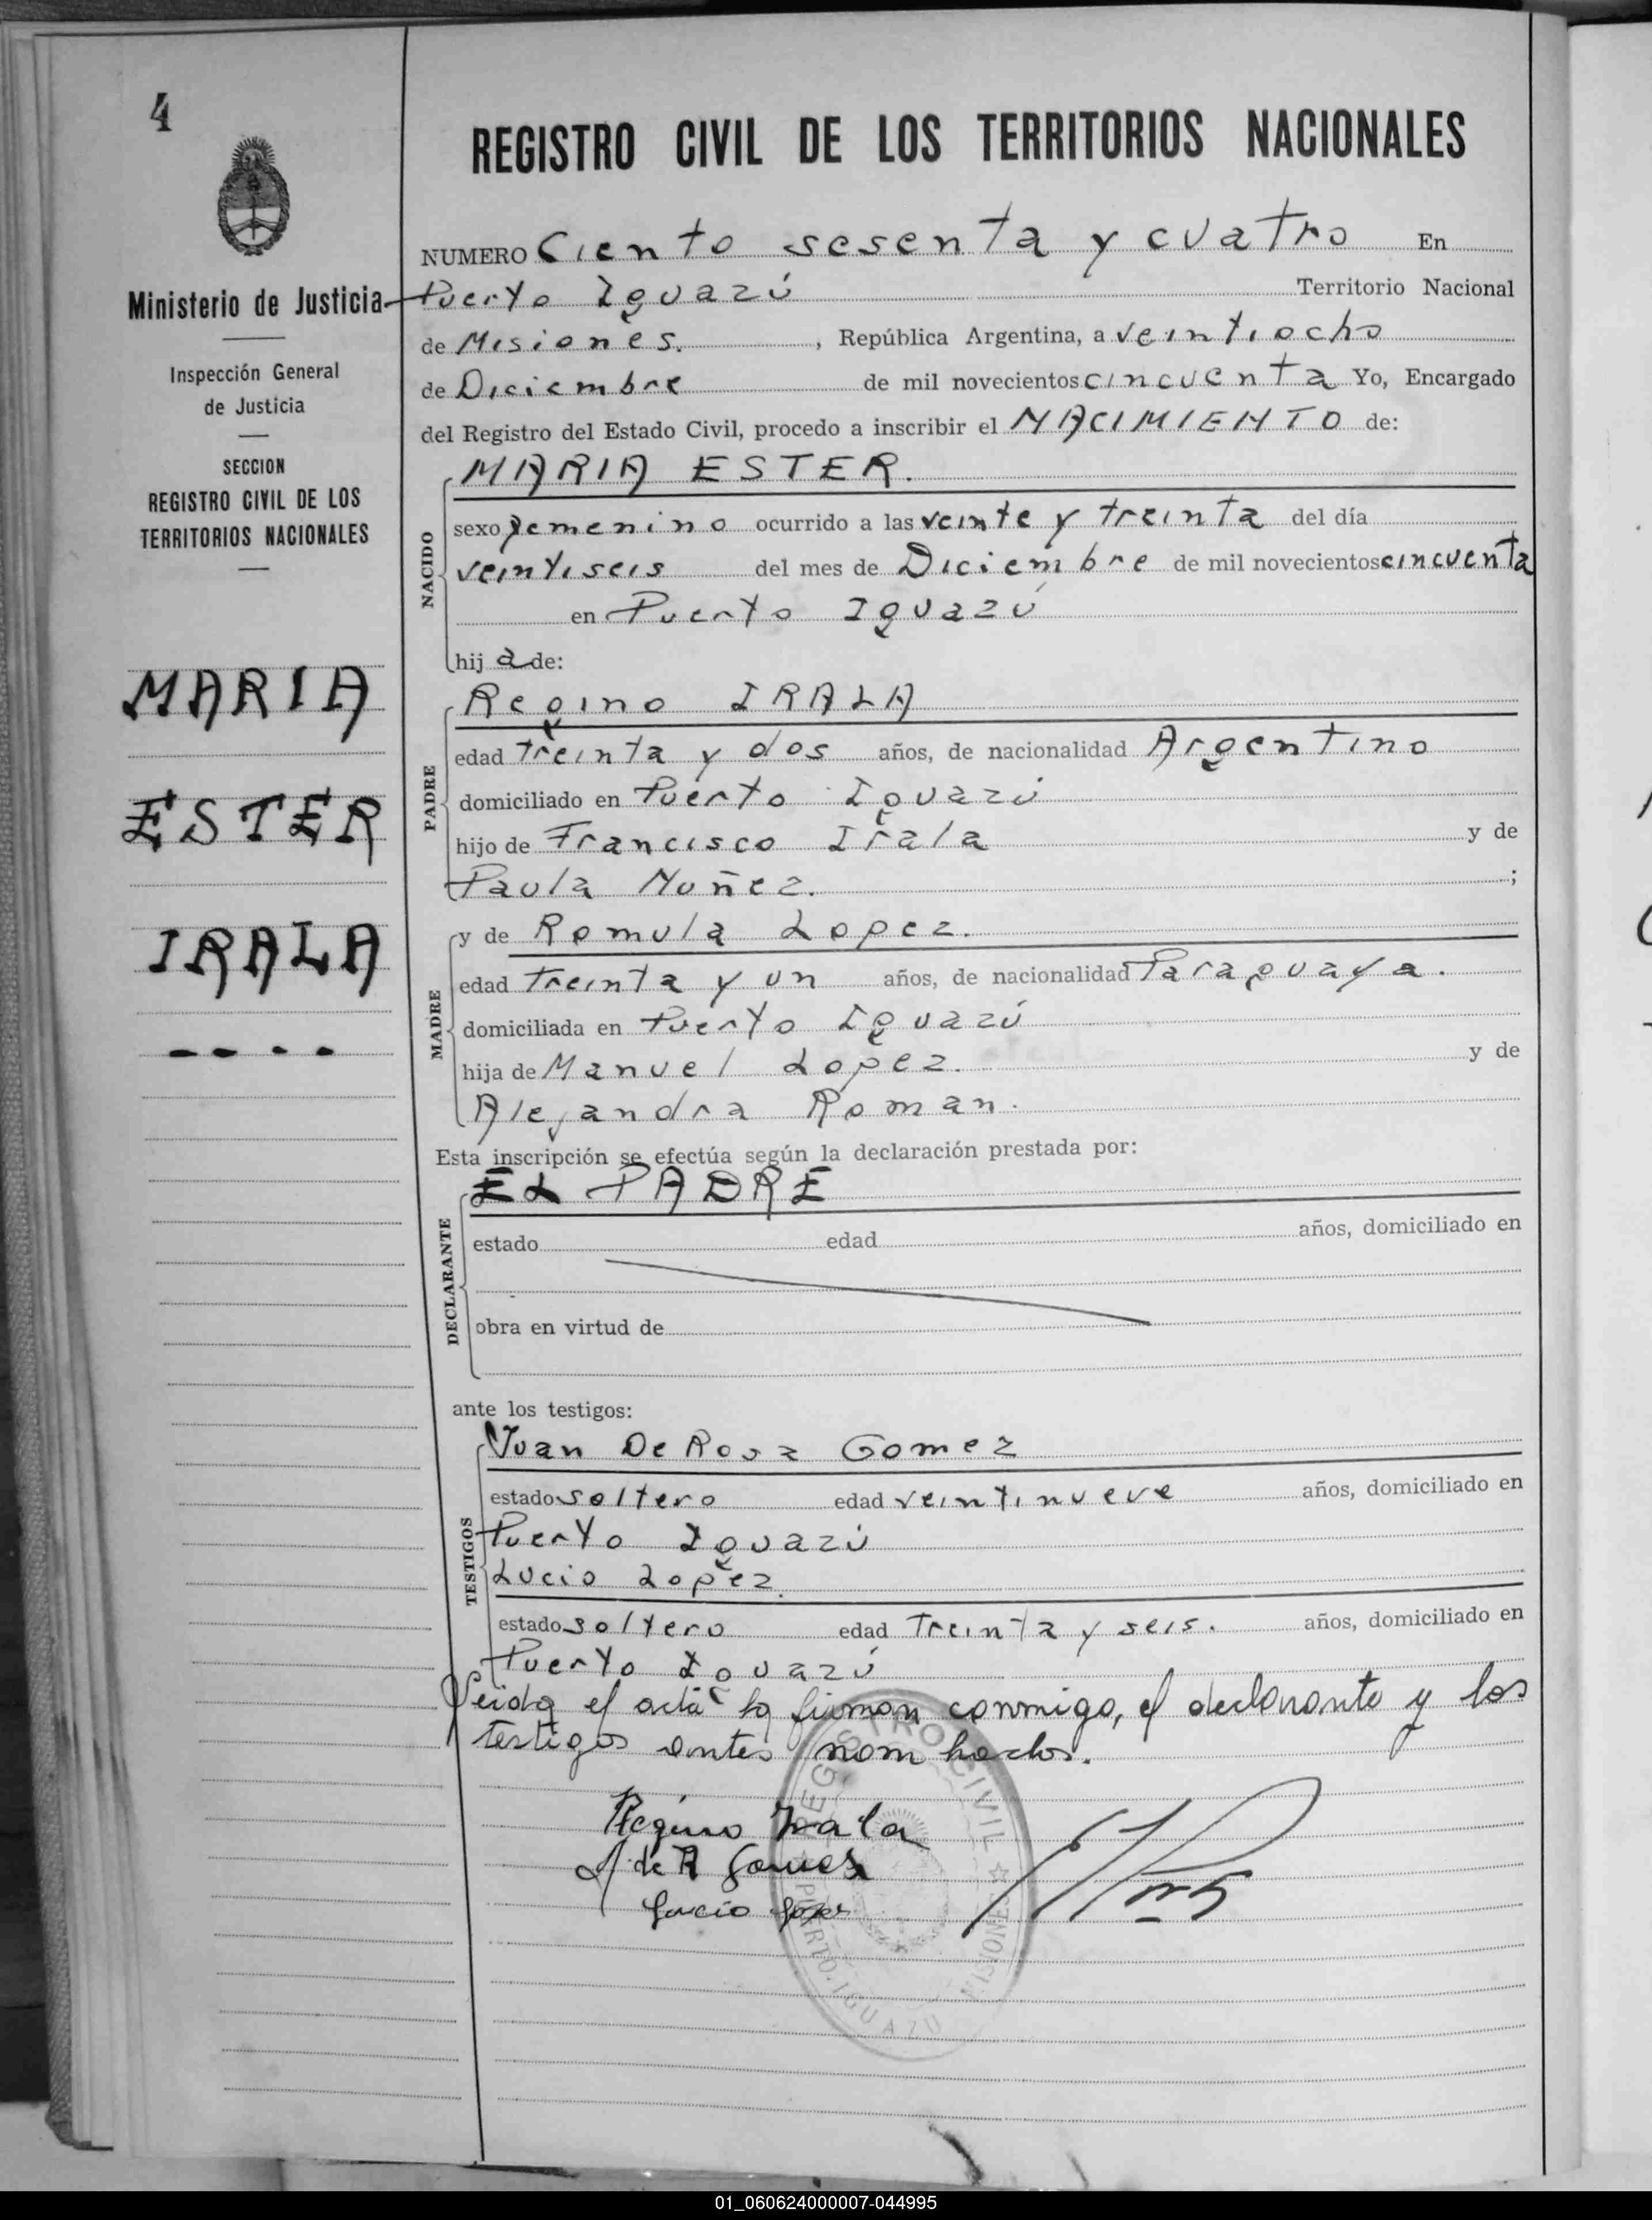 4
Ministerio de Justicia
Inspección General
de Justicia
SECCION
REGISTRO CIVIL DE LOS
TERRITORIOS NACIONALES
MARIA
ESTER
IRALA
- - - -
REGISTRO CIVIL DE LOS TERRITORIOS NACIONALES
NUMERO Ciento sesenta y cuatro En
Puerto Iguazú Territorio Nacional
de Misiones. , República Argentina, a veintiocho
de Diciembre de mil novecientos cincuenta Yo, Encargado
del Registro del Estado Civil, procedo a inscribir el NACIMIENTO de:
NACIDO
MARIA ESTER.
sexo femenino ocurrido a las veinte y treinta del día
veintiseis del mes de Diciembre de mil novecientos cincuenta
en Puerto Iguazú
hij a de:
PADRE
Regino IRALA
edad treinta y dos años, de nacionalidad Argentino
domiciliado en Puerto Iguazú
hijo de Francisco Irala y de
Paula Nuñez. ;
MADRE
y de Romula Lopez.
edad treinta y un años, de nacionalidad Paraguaya.
domiciliada en Puerto Iguazú
hija de Manuel Lopez. y de
Alejandra Roman.
Esta inscripción se efectúa según la declaración prestada por:
DECLARANTE
EL PADRE
estado edad años, domiciliado en
obra en virtud de
ante los testigos:
TESTIGOS
Juan De Rosa Gomez
estado soltero edad veintinueve años, domiciliado en
Puerto Iguazú
Lucio Lopez.
estado soltero edad Treinta y seis. años, domiciliado en
Puerto Iguazú
Leida el acta la firman conmigo, el declarante y los
testigos antes nombrados.
Regino Irala
J. de R Gomes
Lucio Lopez
REGISTRO CIVIL
PUERTO IGUAZU MISIONES
01_060624000007-044995